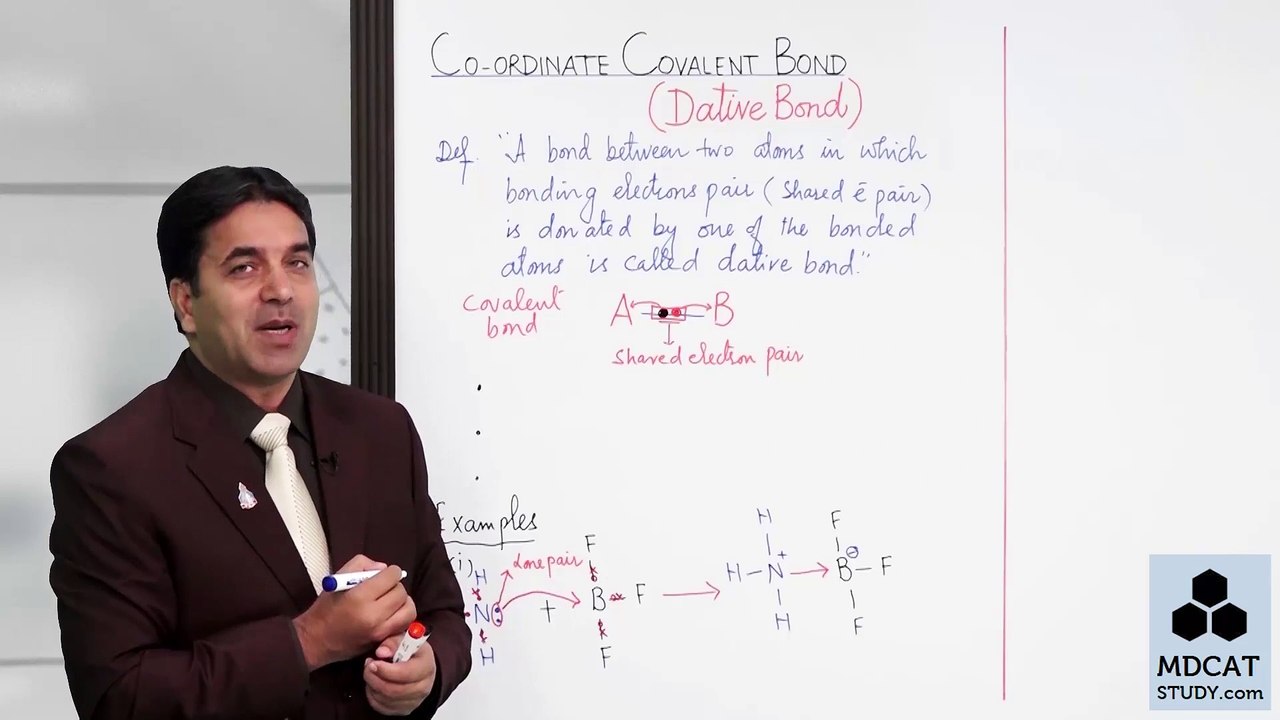 CO-ORDINATE COVALENT BOND
(Dative Bond)
Def. "A bond between two atoms in which
bonding electrons pair (shared ē pair)
is donated by one of the bonded
atoms is called dative bond."
covalent
bond
A B
shared electron pair
Examples
(i)
H
N
H
lone pair
+
F
B F
F
H
H-N+
H
F
B⊖-F
F
MDCAT
STUDY.com